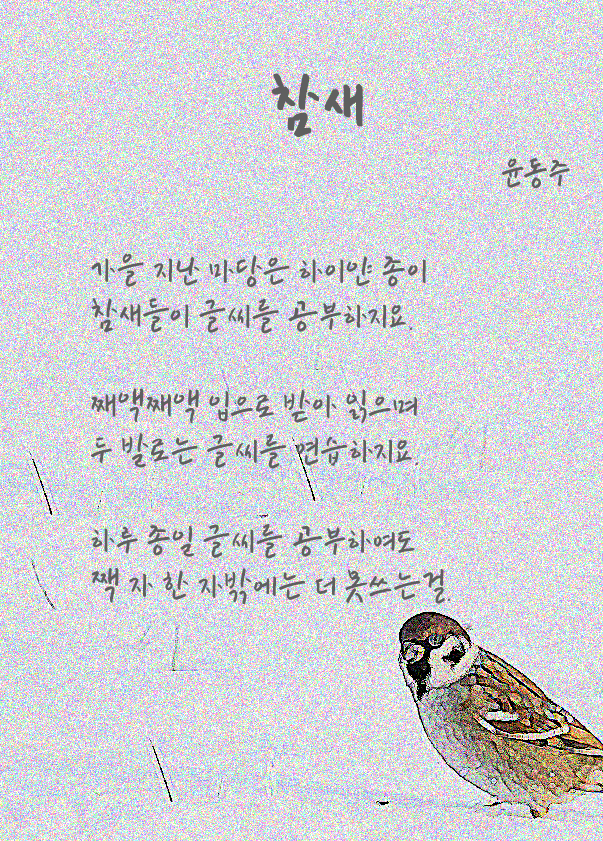 참새
윤동주
가을 지난 마당은 하이얀 종이
참새들이 글씨를 공부하지요.
째액째액 입으로 받아 읽으며
두 발로는 글씨를 연습하지요.
하루 종일 글씨를 공부하여도
짹 자 한 자밖에는 더 못쓰는걸.